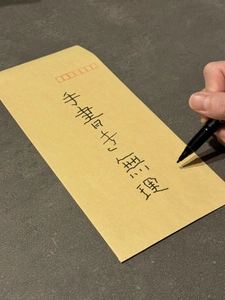 手書き無理